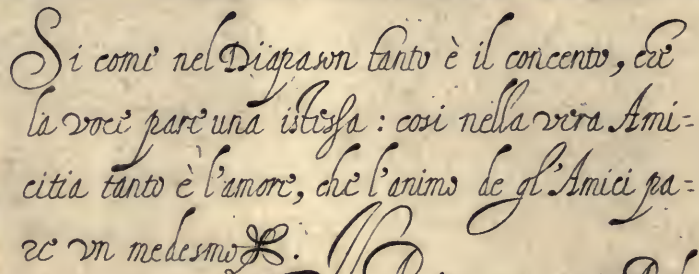 Si come nel Diapason tanto è il concento, che
la voce pare una istessa : cosi nella vera Ami=
citia tanto è l'amore, che l'animo de gl'Amici pa=
re vn medesmo.